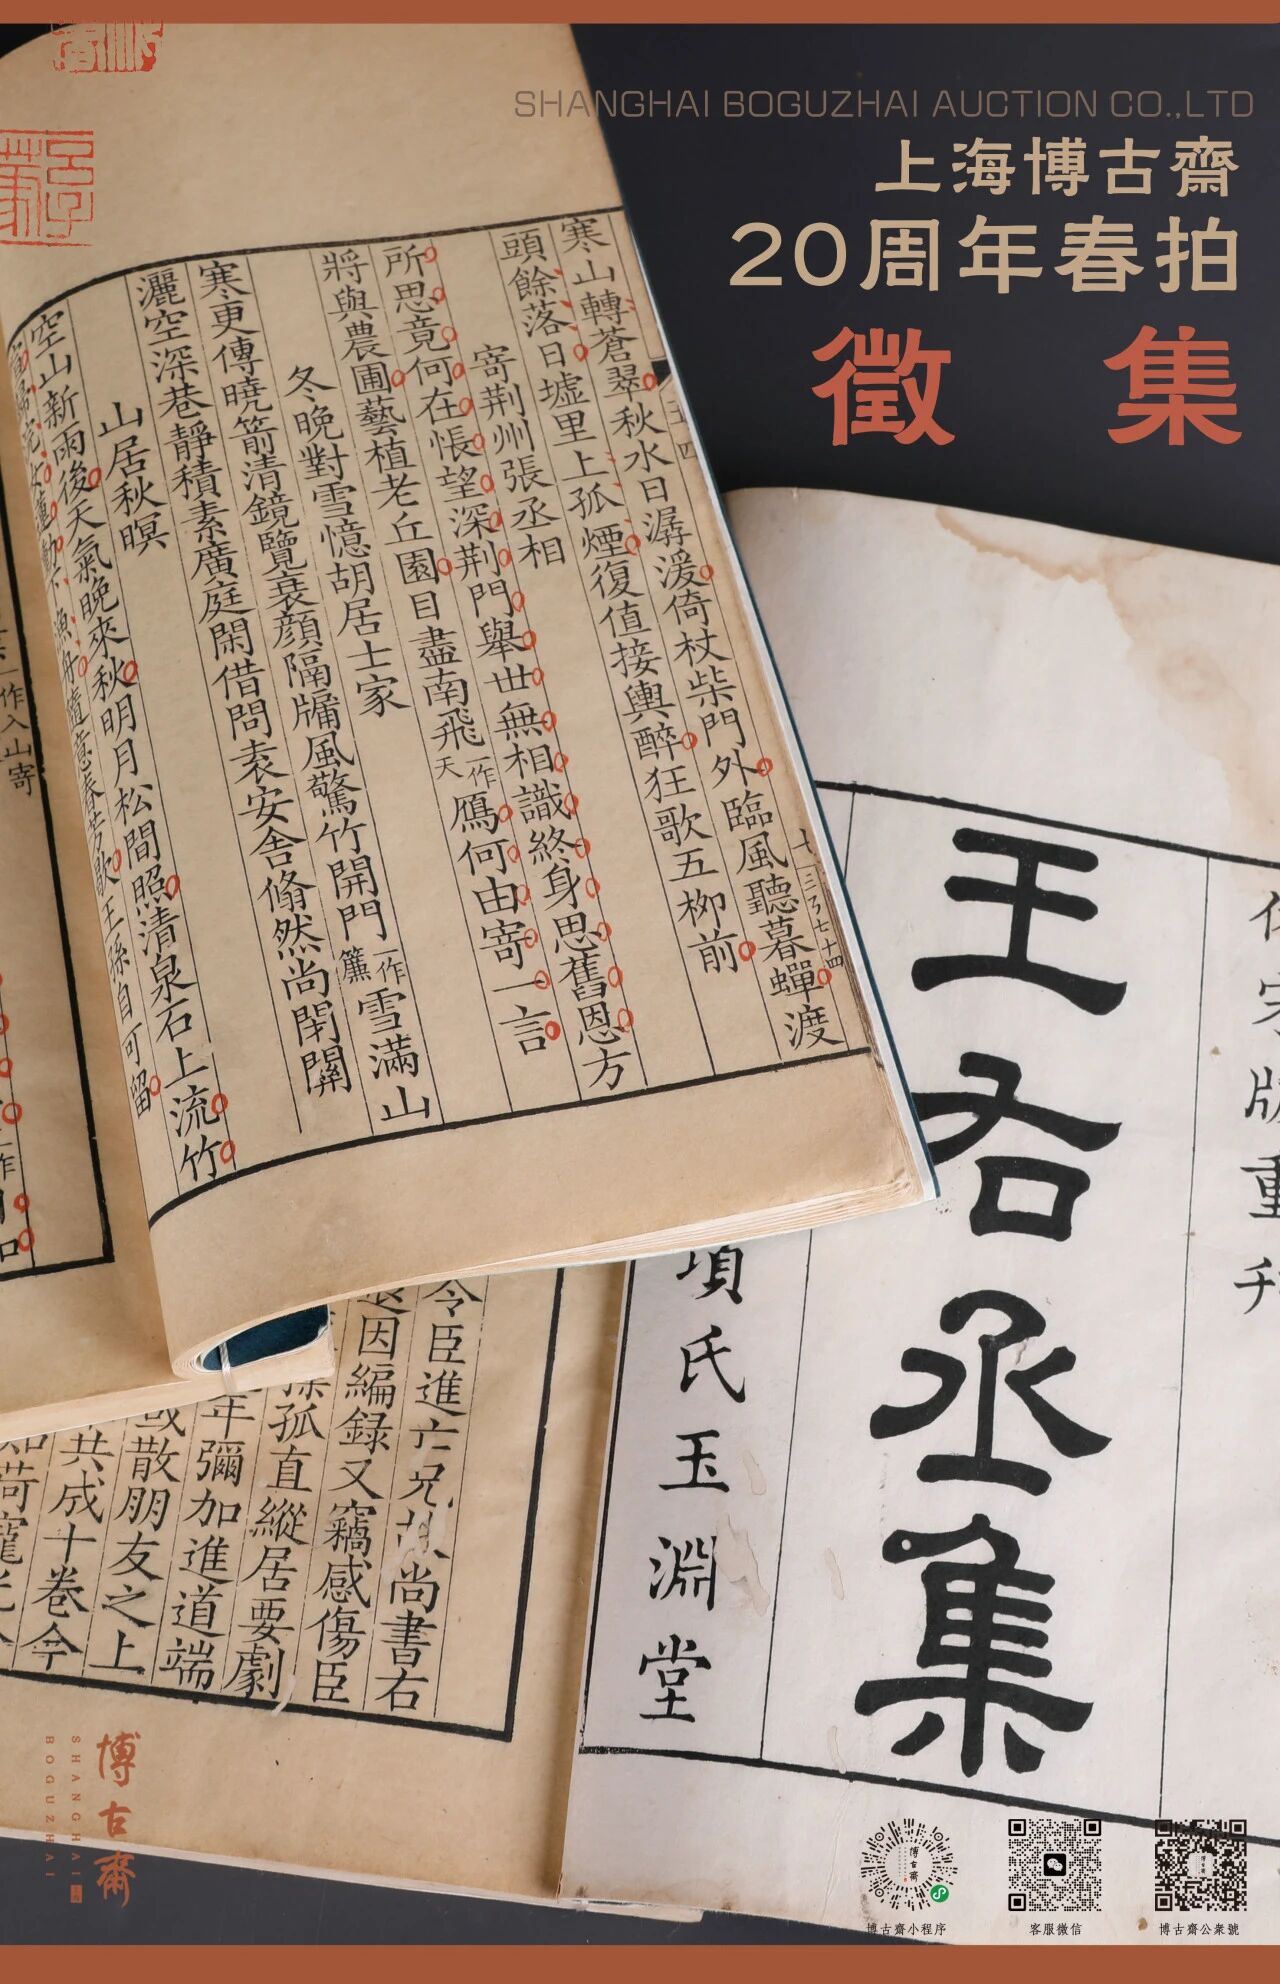 SHANGHAI BOGUZHAI AUCTION CO.,LTD
上海博古齋
20周年春拍
徵集
寒山轉蒼翠秋水日潺湲倚杖柴門外臨風聽暮蟬渡
頭餘落日墟里上孤煙復值接輿醉狂歌五柳前
寄荆州張丞相
所思竟何在悵望深荆門舉世無相識終身思舊恩方
將與農圃藝植老丘園目盡南飛一作天鴈何由寄一言
冬晚對雪憶胡居士家
寒更傳曉箭清鏡覽衰顏隔牖風驚竹開門一作簾雪滿山
灑空深巷靜積素廣庭閑借問袁安舍翛然尚閉關
山居秋暝
空山新雨後天氣晚來秋明月松間照清泉石上流竹
蓮動下漁舟隨意春芳歇王孫自可留
一作入山寄
七二八七十四
王右丞集
宋版重刊
項氏玉淵堂
令臣進亡兄故尚書右
因編錄又竊感傷臣
孤直縱居要劇
年彌加進道端
或散朋友之上
共成十卷今
荷寵
博古齋
SHANGHAI
BOGUZHAI
博古齋
博古齋小程序
客服微信
博古齋公衆號